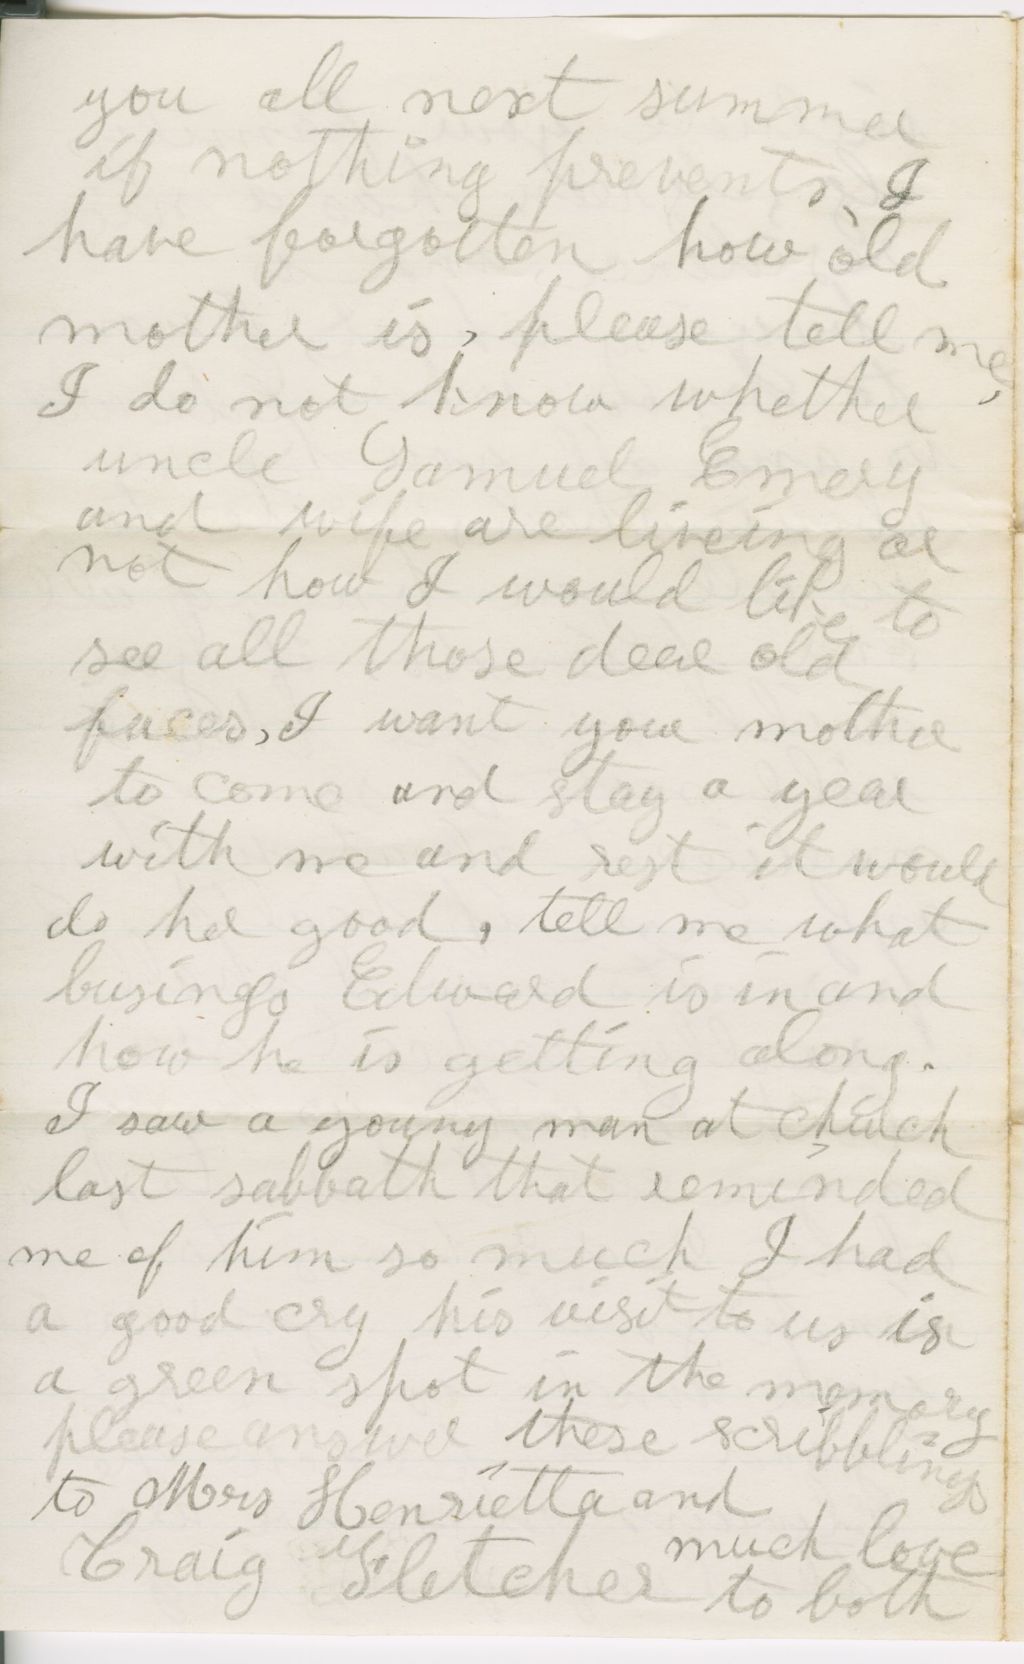 you all next summer
if nothing prevents, I
have forgotten how old
mother is, please tell me,
I do not know whether
uncle Samuel Emery
and wife are liveing or
not how I would like to
see all those dear old
faces, I want your mother
to come and stay a year
with me and rest it would
do her good, tell me what
busings Edward is in and
how he is getting along.
I saw a young man at church
last sabbath that reminded
me of him so much I had
a good cry his visit to us is
a green spot in the memory
please answer these scribblings
to Mrs Henrietta and
much love
Craig Fletcher to both